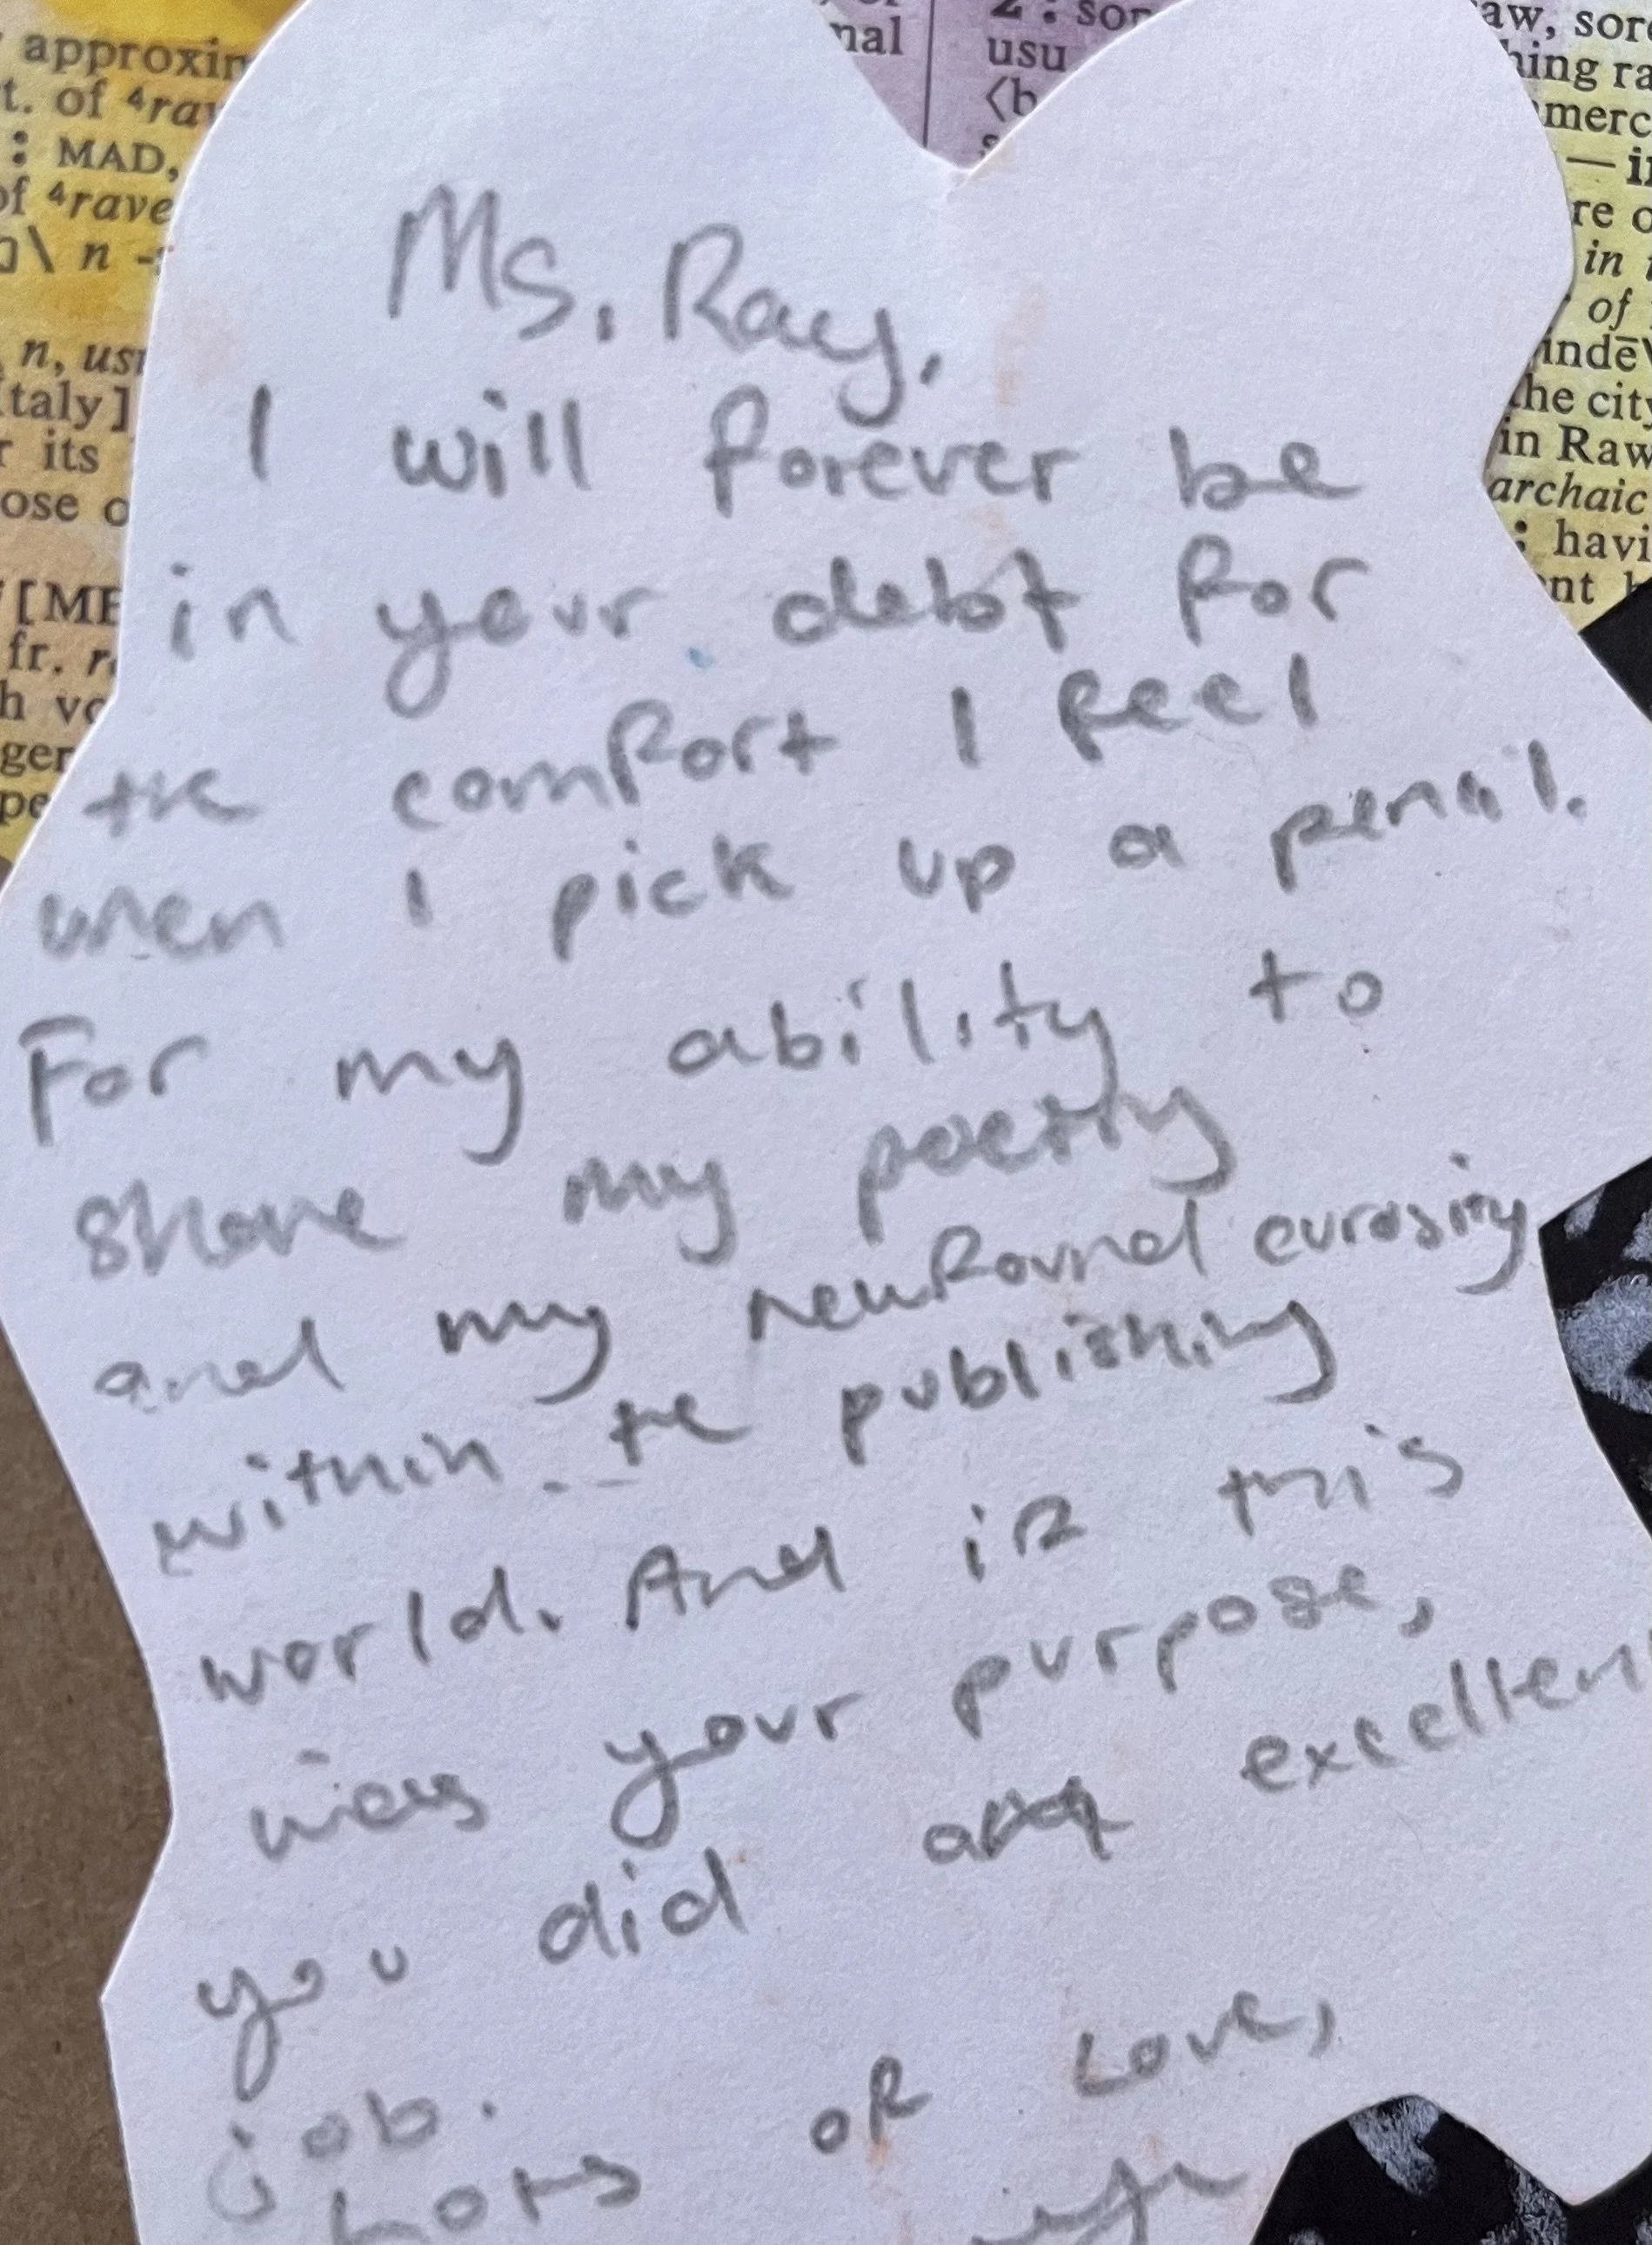 approxin
nal
2 : sor
aw, sore
t. of ⁴ra
usu
hing ra
: MAD,
⟨b
merc
of ⁴rave
— i
\ n -
re o
in
of
n, usu
indē\
[taly]
the city
r its
in Raw
ose o
archaic
: havi
[ME
nt
fr. r
h vo
ger
pe
Ms. Ray,
I will forever be
in your debt for
the comfort I feel
when I pick up a pencil.
For my ability to
share my poetry
and my newfound curosity
within the publishing
world. And if this
was your purpose,
you did excellent
job.
Lots of Love,